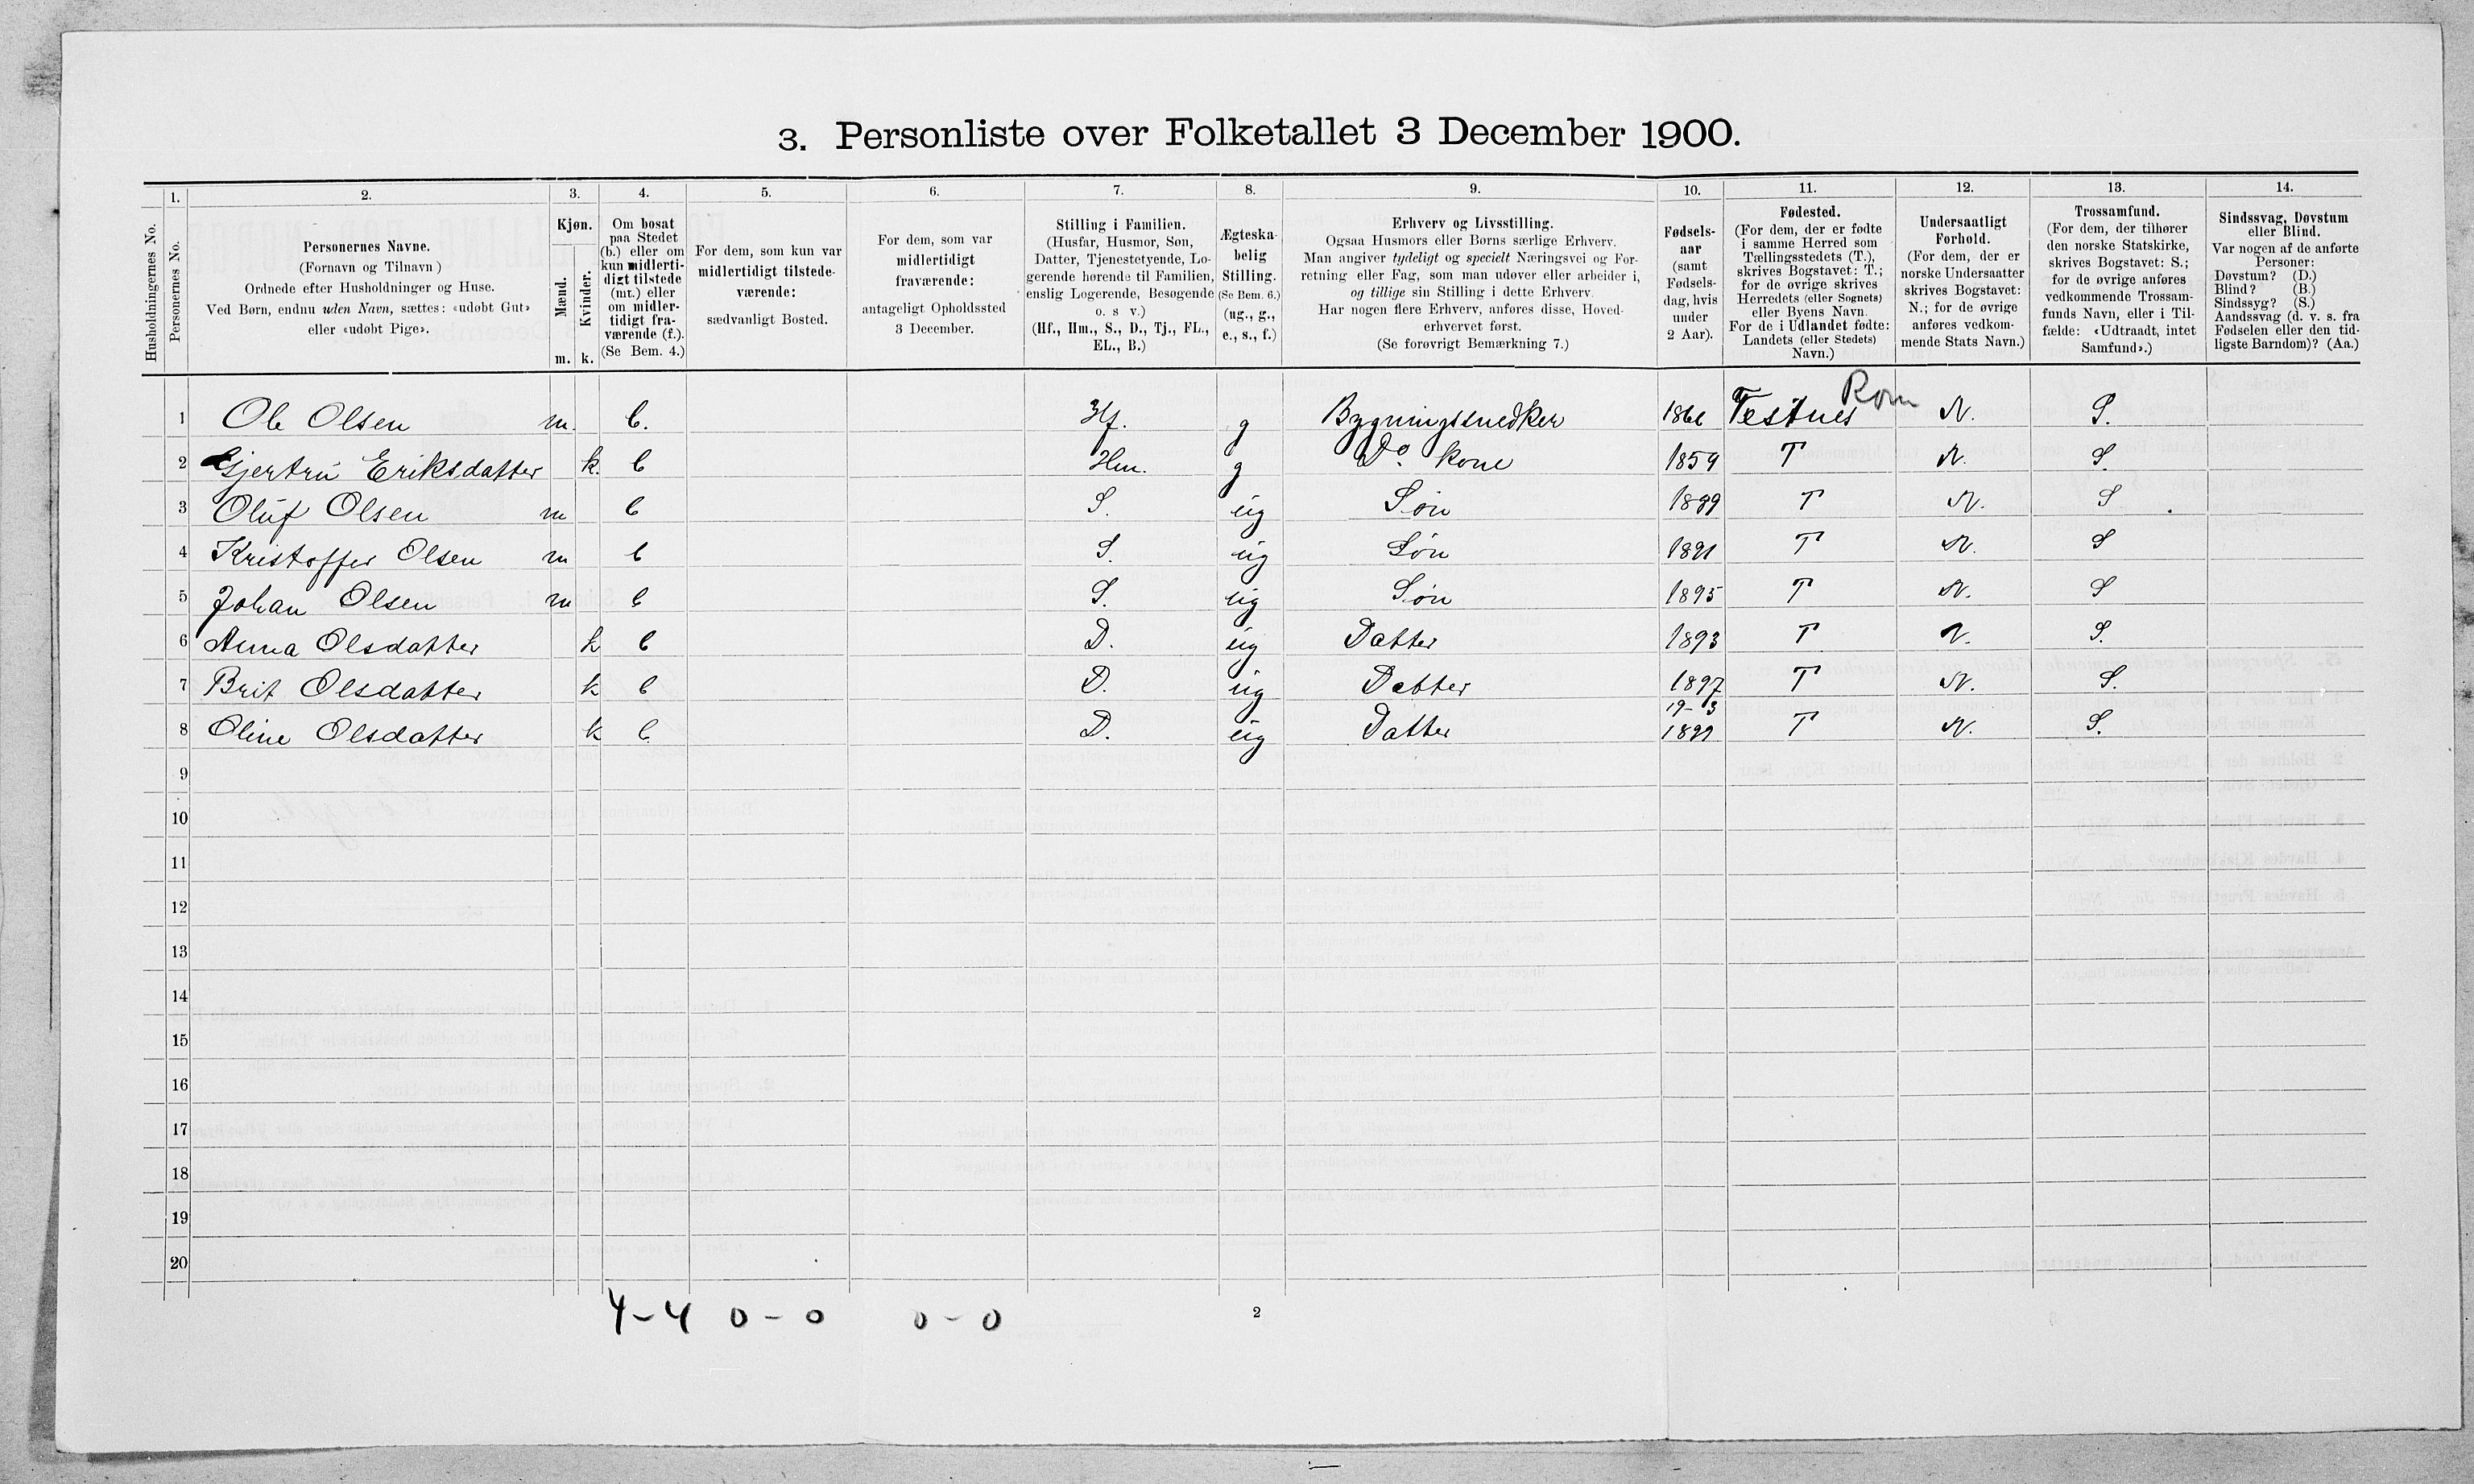 3. Personliste over Folketallet 3 December 1900.
1. 2. 3. 4. 5. 6. 7. 8. 9. 10. 11. 12. 13. 14.
Husholdningernes No.
Personernes No.
Personernes Navne.
(Fornavn og Tilnavn)
Ordnede efter Husholdninger og Huse.
Ved Børn, endnu uden Navn, sættes: «udøbt Gut»
eller «udøbt Pige».
Kjøn.
Mænd.
Kvinder.
m. k.
Om bosat
paa Stedet
(b.) eller om
kun midlerti-
digt tilstede
(mt.) eller
om midler-
tidigt fra-
værende (f.).
(Se Bem. 4.)
For dem, som kun var
midlertidigt tilstede-
værende:
sædvanligt Bosted.
For dem, som var
midlertidigt
fraværende:
antageligt Opholdssted
3 December.
Stilling i Familien.
(Husfar, Husmor, Søn,
Datter, Tjenestetyende, Lo-
gerende hørende til Familien,
enslig Logerende, Besøgende
o. s v.)
(Hf., Hm., S., D., Tj., FL.,
EL., B.)
Ægteska-
belig
Stilling.
(Se Bem. 6.)
(ug., g.,
e., s., f.)
Erhverv og Livsstilling.
Ogsaa Husmors eller Børns særlige Erhverv.
Man angiver tydeligt og specielt Næringsvei og For-
retning eller Fag, som man udøver eller arbeider i,
og tillige sin Stilling i dette Erhverv.
Har nogen flere Erhverv, anføres disse, Hoved-
erhvervet først.
(Se forøvrigt Bemærkning 7.)
Fødsels-
aar
(samt
Fødsels-
dag, hvis
under
2 Aar).
Fødested.
(For dem, der er fødte
i samme Herred som
Tællingsstedets (T.),
skrives Bogstavet: T.;
for de øvrige skrives
Herredets (eller Sognets)
eller Byens Navn.
For de i Udlandet fødte:
Landets (eller Stedets)
Navn.)
Undersaatligt
Forhold.
(For dem, der er
norske Undersaatter
skrives Bogstavet:
N.; for de øvrige
anføres vedkom-
mende Stats Navn.)
Trossamfund.
(For dem, der tilhører
den norske Statskirke,
skrives Bogstavet: S.;
for de øvrige anføres
vedkommende Trossam-
funds Navn, eller i Til-
fælde: «Udtraadt, intet
Samfund».)
Sindssvag, Døvstum
eller Blind.
Var nogen af de anførte
Personer:
Døvstum? (D.)
Blind? (B.)
Sindssyg? (S.)
Aandssvag (d. v. s. fra
Fødselen eller den tid-
ligste Barndom)? (Aa.)
Rom
1 Ole Olsen m. b. Hf. g Bygningssnedker N. S.
2 Gjertru Eriksdatter k. b Hm. g Do kone 1859 T N. S.
3 Oluf Olsen m b S. ug Søn 1889 T N. S
4 Kristoffer Olsen m b S. ug Søn 1891 T N. S
5 Johan Olsen m b S. ug Søn 1895 T N. S
6 Anna Olsdatter k b D. ug Datter 1893 T N. S.
7 Brit Olsdatter k b D. ug Datter 1897 T N. S.
19-3
8 Oline Olsdatter k b. D. ug Datter 1899 T N. S.
9
10
11
12
13
14
15
16
17
18
19
20
4-4 0-0 0-0 2